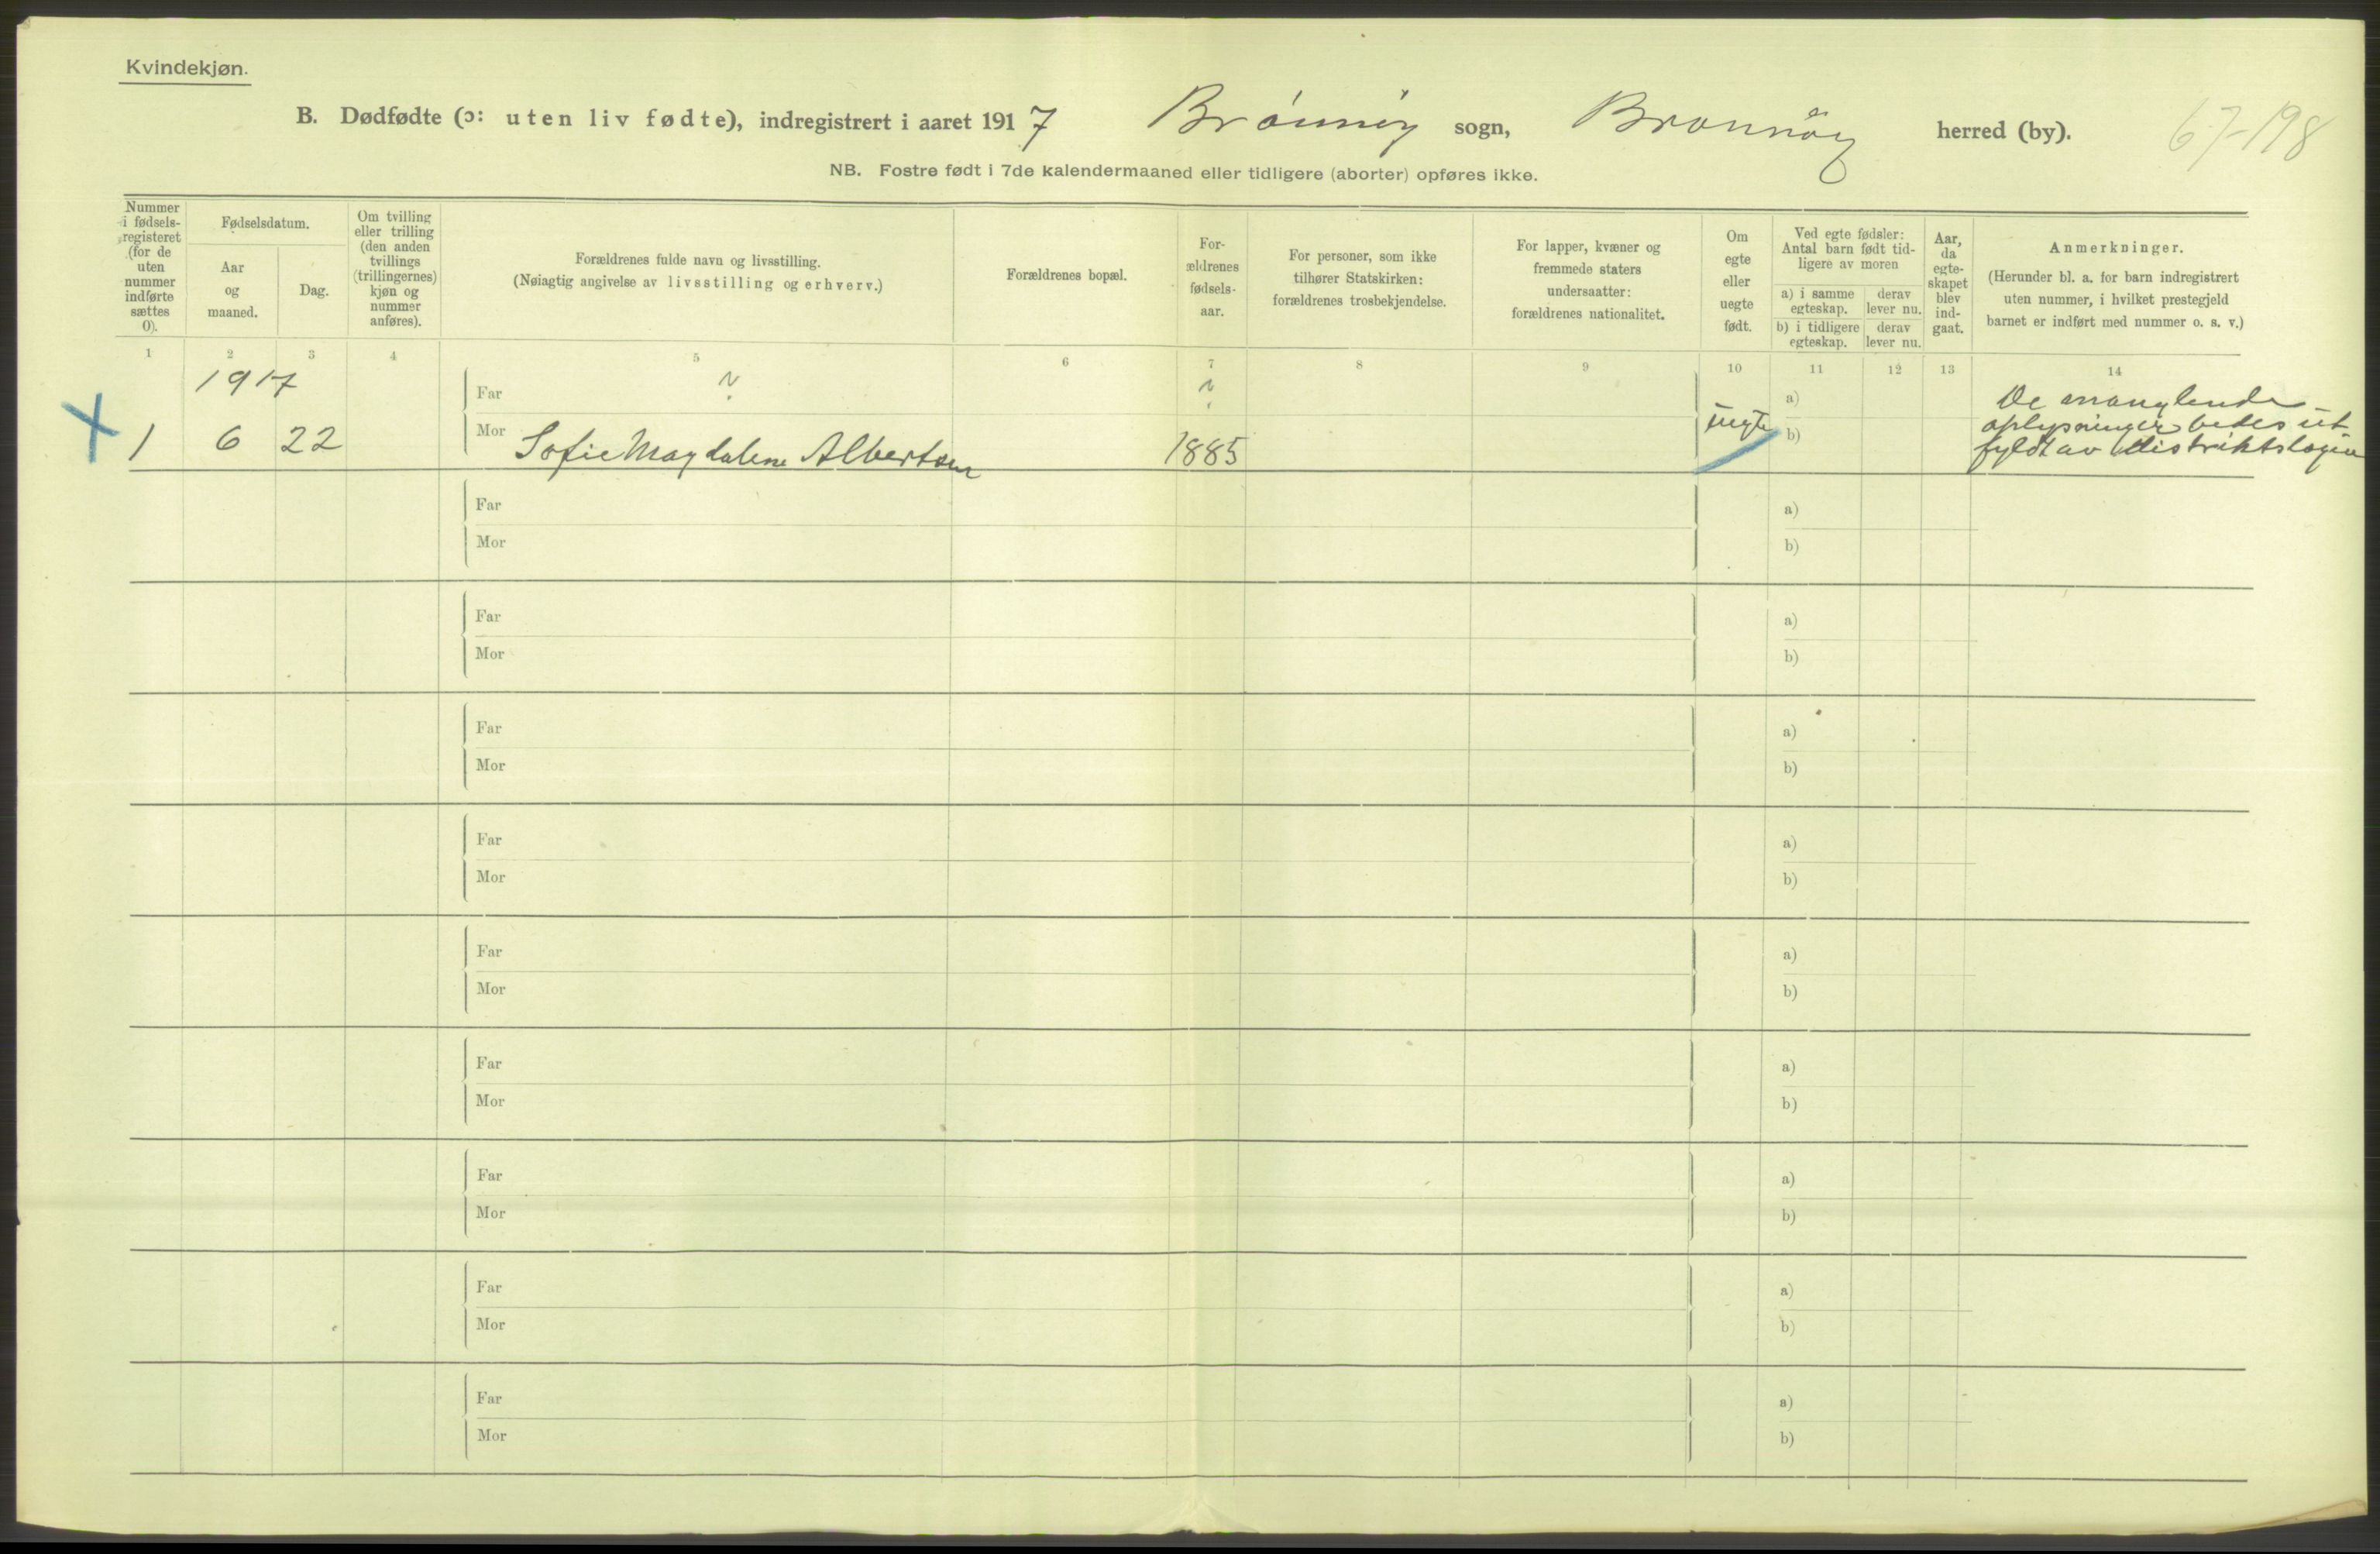 Kvindekjøn.
B. Dødfødte (ɔ: uten liv fødte), indregistrert i aaret 1917 Brönnöy sogn, Brønnøy herred (by). 67-198
NB. Fostre født i 7de kalendermaaned eller tidligere (aborter) opføres ikke.
Nummer
i fødsels-
registeret
(for de
uten
nummer
indførte
sættes
0).
Fødselsdatum.
Aar
og
maaned.
Dag.
Om tvilling
eller trilling
(den anden
tvillings
(trillingernes)
kjøn og
nummer
anføres).
Forældrenes fulde navn og livsstilling.
(Nøiagtig angivelse av livsstilling og erhverv.)
Forældrenes bopæl.
For-
ældrenes
fødsels-
aar.
For personer, som ikke
tilhører Statskirken:
forældrenes trosbekjendelse.
For lapper, kvæner og
fremmede staters
undersaatter:
forældrenes nationalitet.
Om
egte
eller
uegte
født.
Ved egte fødsler:
Antal barn født tid-
ligere av moren
a) i samme
egteskap.
derav
lever nu.
b) i tidligere
egteskap.
derav
lever nu.
Aar,
da
egte-
skapet
blev
ind-
gaat.
Anmerkninger.
(Herunder bl. a. for barn indregistrert
uten nummer, i hvilket prestegjeld
barnet er indført med nummer o. s. v.)
1 2 3 4 5 6 7 8 9 10 11 12 13 14
1917
Far ? ? a) De manglende
1 6 22 Mor Sofie Magdalene Albertsen 1885 uegte b) oplysninger bedes ut
fyldt av distriktslægen
Far a)
Mor b)
Far a)
Mor b)
Far a)
Mor b)
Far a)
Mor b)
Far a)
Mor b)
Far a)
Mor b)
Far a)
Mor b)
Far a)
Mor b)
Far a)
Mor b)